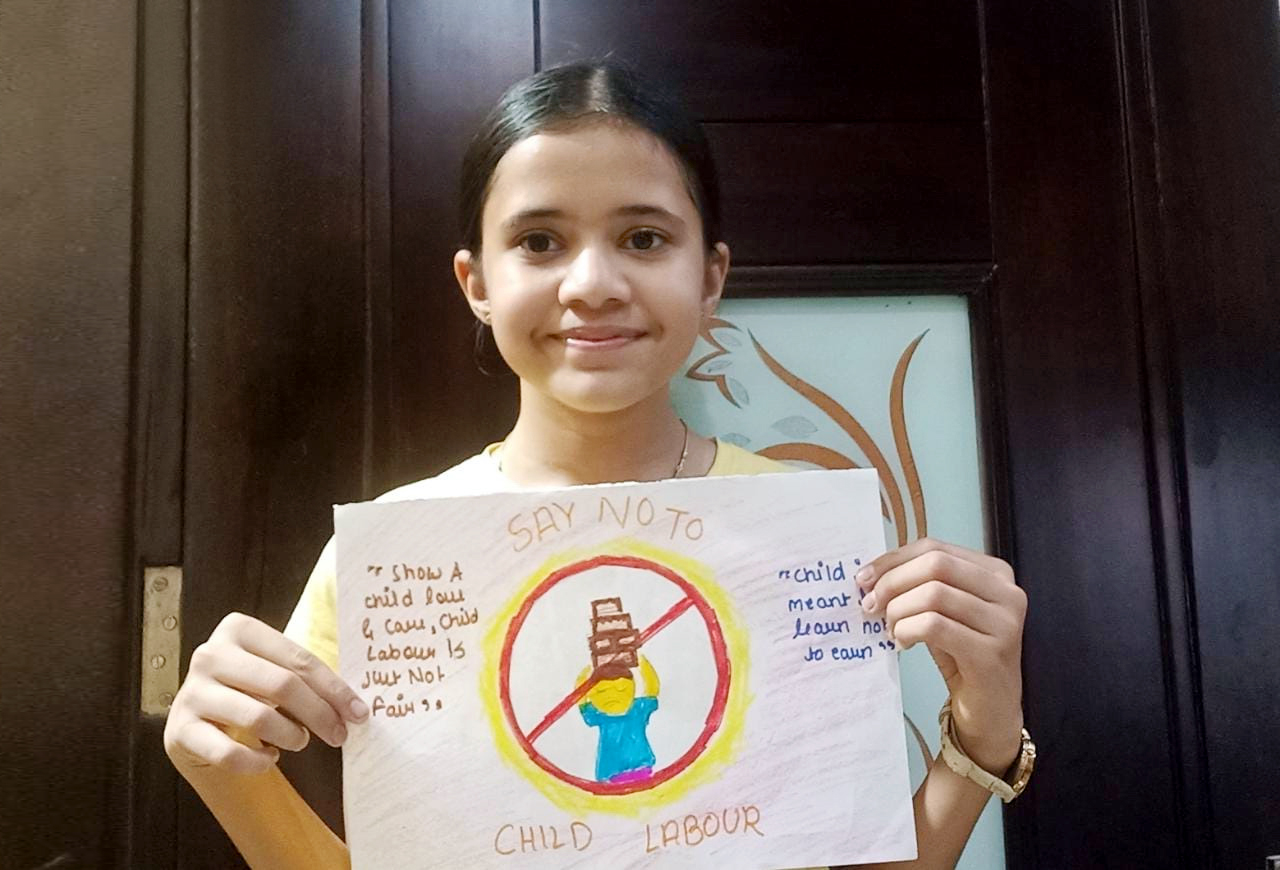 SAY NO TO
" Show A
child love
& care, child
Labour Is
Just Not
Fair "
"child
meant
learn not
to earn "
CHILD LABOUR